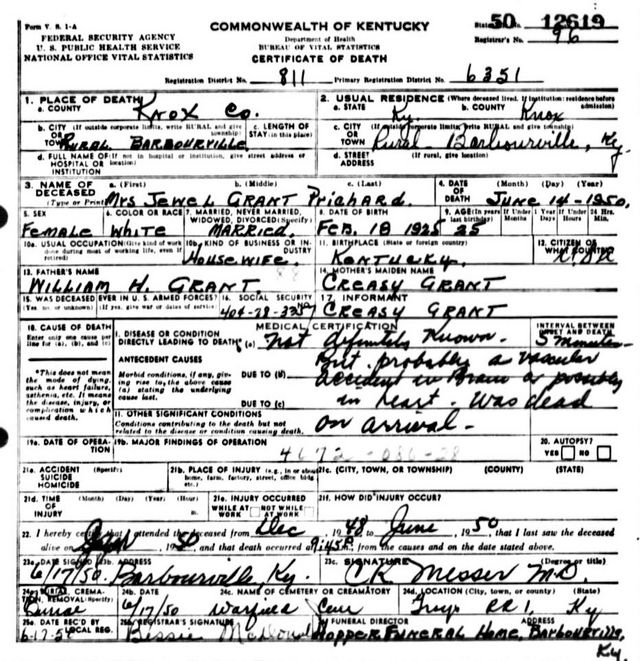 Form V. S. 1-A
COMMONWEALTH OF KENTUCKY
State 50 12619
FEDERAL SECURITY AGENCY
Department of Health
Registrar's No. 96
U. S. PUBLIC HEALTH SERVICE
BUREAU OF VITAL STATISTICS
NATIONAL OFFICE VITAL STATISTICS
CERTIFICATE OF DEATH
Registration District No. 811 Primary Registration District No. 6351
1. PLACE OF DEATH
a. COUNTY Knox Co.
2. USUAL RESIDENCE (Where deceased lived. If institution: residence before admission)
a. STATE Ky. b. COUNTY Knox
b. CITY (If outside corporate limits, write RURAL and give township)
OR TOWN Rural Barbourville
c. LENGTH OF STAY (in this place)
c. CITY (If outside corporate limits, write RURAL and give township)
OR TOWN Rural - Barbourville, Ky.
d. FULL NAME OF (If not in hospital or institution, give street address or location)
HOSPITAL OR INSTITUTION
d. STREET (If rural, give location)
ADDRESS
3. NAME OF DECEASED (Type or Print)
a. (First) b. (Middle) c. (Last)
Mrs Jewel Grant Prichard.
4. DATE OF DEATH (Month) (Day) (Year)
June 14-1950.
5. SEX
Female
6. COLOR OR RACE
White
7. MARRIED, NEVER MARRIED, WIDOWED, DIVORCED (Specify)
Married.
8. DATE OF BIRTH
Feb. 18 1925
9. AGE (In years last birthday) If Under 1 Year If Under 24 Hrs.
25
10a. USUAL OCCUPATION (Give kind of work done during most of working life, even if retired)
10b. KIND OF BUSINESS OR INDUSTRY
Housewife.
11. BIRTHPLACE (State or foreign country)
Kentucky.
12. CITIZEN OF WHAT COUNTRY
13. FATHER'S NAME
William H. Grant
14. MOTHER'S MAIDEN NAME
Creasy Grant
15. WAS DECEASED EVER IN U. S. ARMED FORCES?
(Yes, no, or unknown) (If yes, give war or dates of service)
16. SOCIAL SECURITY NO.
17. INFORMANT
Creasy Grant
18. CAUSE OF DEATH
Enter only one cause per line for (a), (b), and (c)
MEDICAL CERTIFICATION
INTERVAL BETWEEN ONSET AND DEATH
I. DISEASE OR CONDITION DIRECTLY LEADING TO DEATH* (a) Not definitely known. 5 minutes
*This does not mean the mode of dying, such as heart failure, asthenia, etc. It means the disease, injury, or complication which caused death.
ANTECEDENT CAUSES
Morbid conditions, if any, giving rise to the above cause (a) stating the underlying cause last.
But probably a vascular
DUE TO (b) accident in Brain or possibly
DUE TO (c) in heart. Was dead
on arrival -
II. OTHER SIGNIFICANT CONDITIONS
Conditions contributing to the death but not related to the disease or condition causing death.
19a. DATE OF OPERATION
19b. MAJOR FINDINGS OF OPERATION
20. AUTOPSY?
YES NO
21a. ACCIDENT SUICIDE HOMICIDE (Specify)
21b. PLACE OF INJURY (e.g., in or about home, farm, factory, street, office bldg., etc.)
21c. (CITY, TOWN, OR TOWNSHIP) (COUNTY) (STATE)
21d. TIME OF INJURY (Month) (Day) (Year) (Hour)
21e. INJURY OCCURRED
WHILE AT WORK NOT WHILE AT WORK
21f. HOW DID INJURY OCCUR?
22. I hereby certify that I attended the deceased from Dec 1948 to June 1950, that I last saw the deceased
alive on 50, and that death occurred at 9:45 P. m., from the causes and on the date stated above.
23a.
6/17/50
23b. ADDRESS
Barbourville, Ky.
23c. SIGNATURE (Degree or title)
CK Messer M.D.
24a. BURIAL, CREMATION, REMOVAL? (Specify)
24b. DATE
6/17/50
24c. NAME OF CEMETERY OR CREMATORY
Warfield Cem
24d. LOCATION (City, town, or county) (State)
RR 1, Ky
25a. DATE REC'D BY LOCAL REG.
25b. REGISTRAR'S SIGNATURE
Bessie
FUNERAL DIRECTOR ADDRESS
Hopper Funeral Home, Barbourville, Ky.